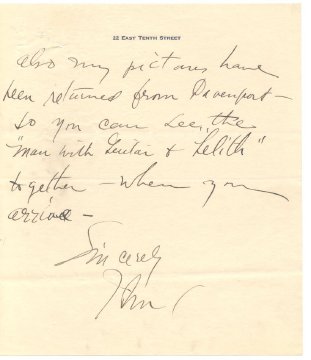 22 EAST TENTH STREET
also my pictures have
been returned from Davenport —
So you can see the
"Man with Guitar & Lilith"
together — when you
arrive —
Sincerely